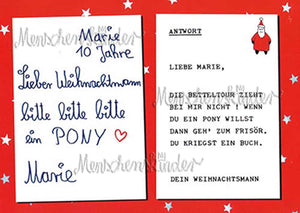 Marie
10 Jahre
Lieber Weihnachtsmann
bitte bitte bitte
ein PONY
Marie
ANTWORT
LIEBE MARIE,
DIE BETTELTOUR ZIEHT
BEI MIR NICHT ! WENN
DU EIN PONY WILLST
DANN GEH' ZUM FRISÖR.
DU KRIEGST EIN BUCH.
DEIN WEIHNACHTSMANN
Menschenskinder
Menschenskinder